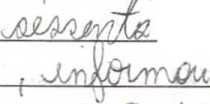 sessenta
, informou